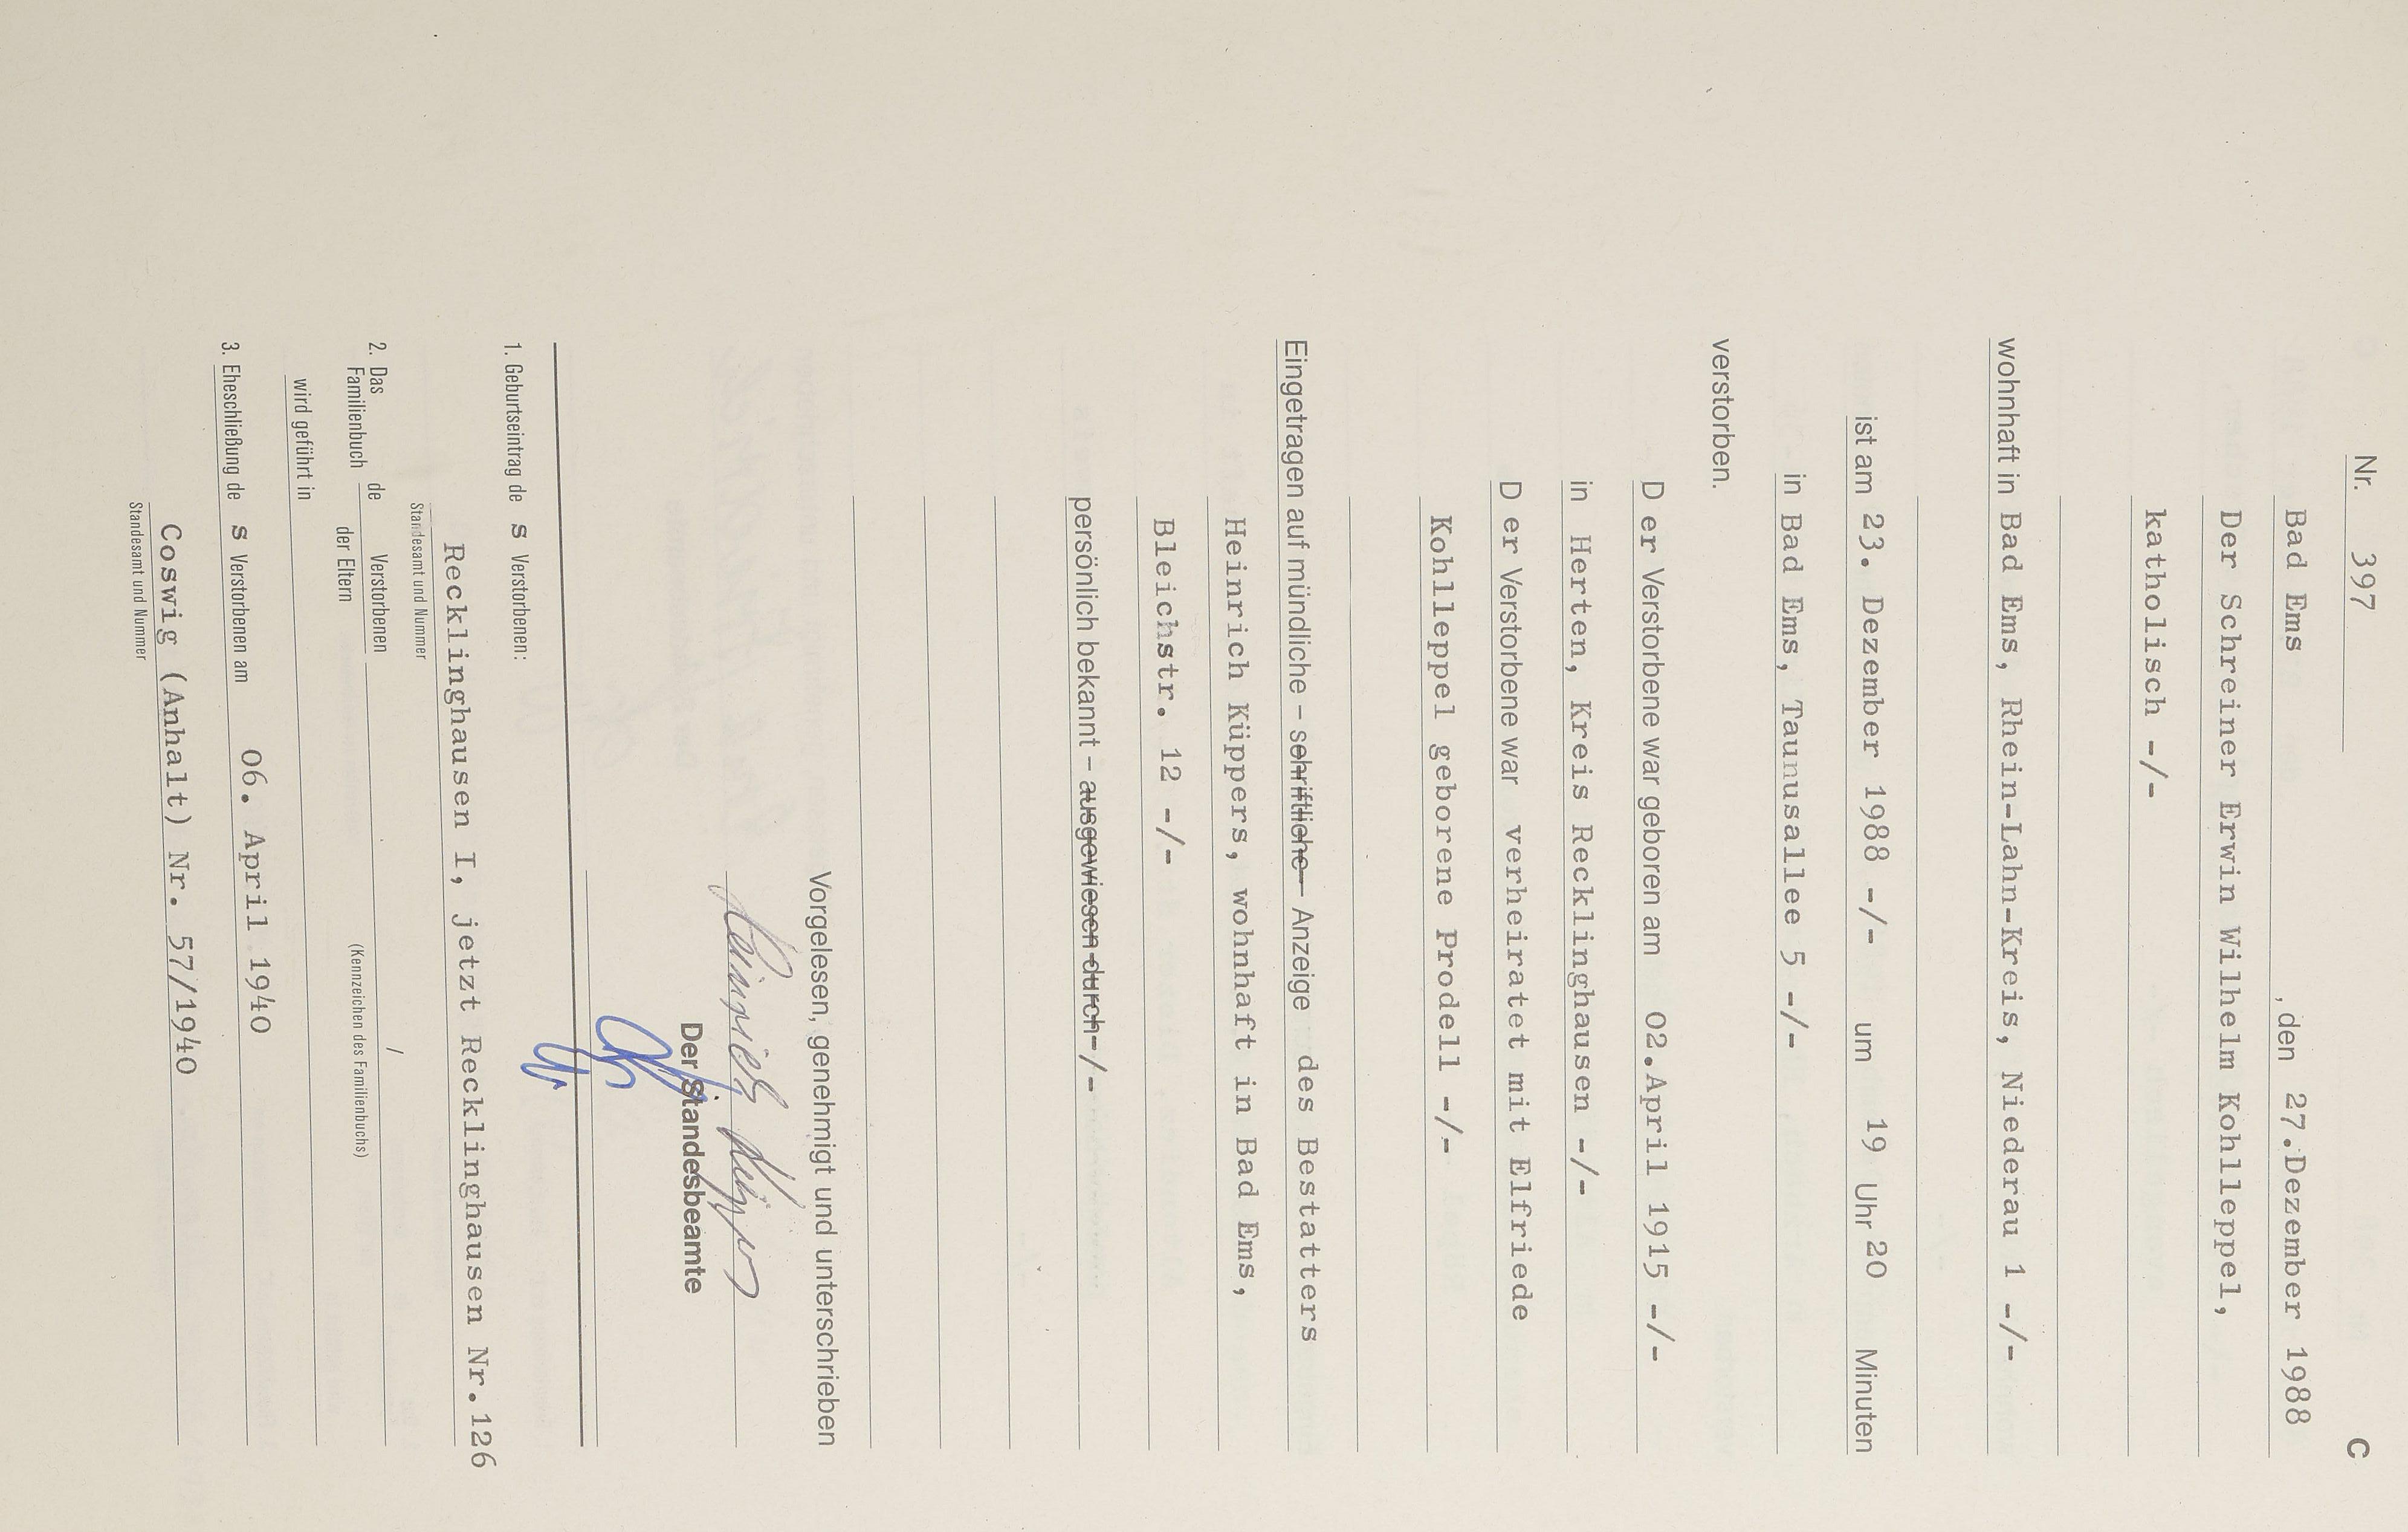 C
Nr. 397
Bad Ems , den 27.Dezember 1988
Der Schreiner Erwin Wilhelm Kohlleppel,
katholisch -/-
wohnhaft in Bad Ems, Rhein-Lahn-Kreis, Niederau 1 -/-
ist am 23. Dezember 1988 -/- um 19 Uhr 20 Minuten
in Bad Ems, Taunusallee 5 -/-
verstorben.
D er Verstorbene war geboren am 02.April 1915 -/-
in Herten, Kreis Recklinghausen -/-
D er Verstorbene war verheiratet mit Elfriede
Kohlleppel geborene Prodell -/-
Eingetragen auf mündliche – schriftliche – Anzeige des Bestatters
Heinrich Küppers, wohnhaft in Bad Ems,
Bleichstr. 12 -/-
persönlich bekannt – ausgewiesen durch -/-
Vorgelesen, genehmigt und unterschrieben
Heinrich Küppers
Der Standesbeamte
1. Geburtseintrag de s Verstorbenen:
Recklinghausen I, jetzt Recklinghausen Nr.126
Standesamt und Nummer
2. Das Familienbuch de Verstorbenen /
der Eltern (Kennzeichen des Familienbuchs)
wird geführt in
3. Eheschließung de s Verstorbenen am 06. April 1940
Coswig (Anhalt) Nr. 57/1940
Standesamt und Nummer